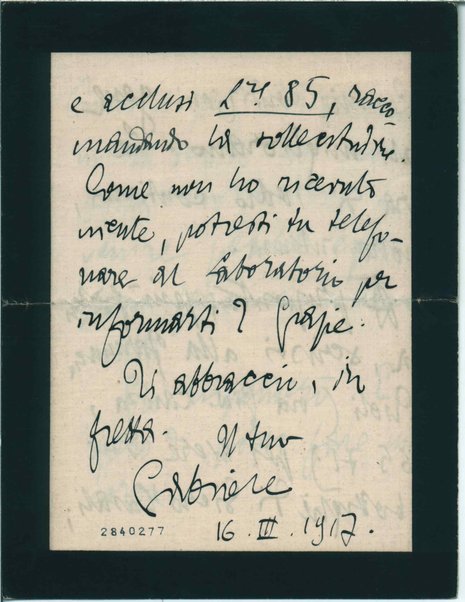 e acclusi Lre 85, racco
mandando la sollecitudine.
Come non ho ricevuto
niente, potresti tu telefo-
nare al Laboratorio per
informarti? Grazie.
Ti abbraccio, in
fretta. Il tuo
Gabriele
16. III. 1917.
2840277